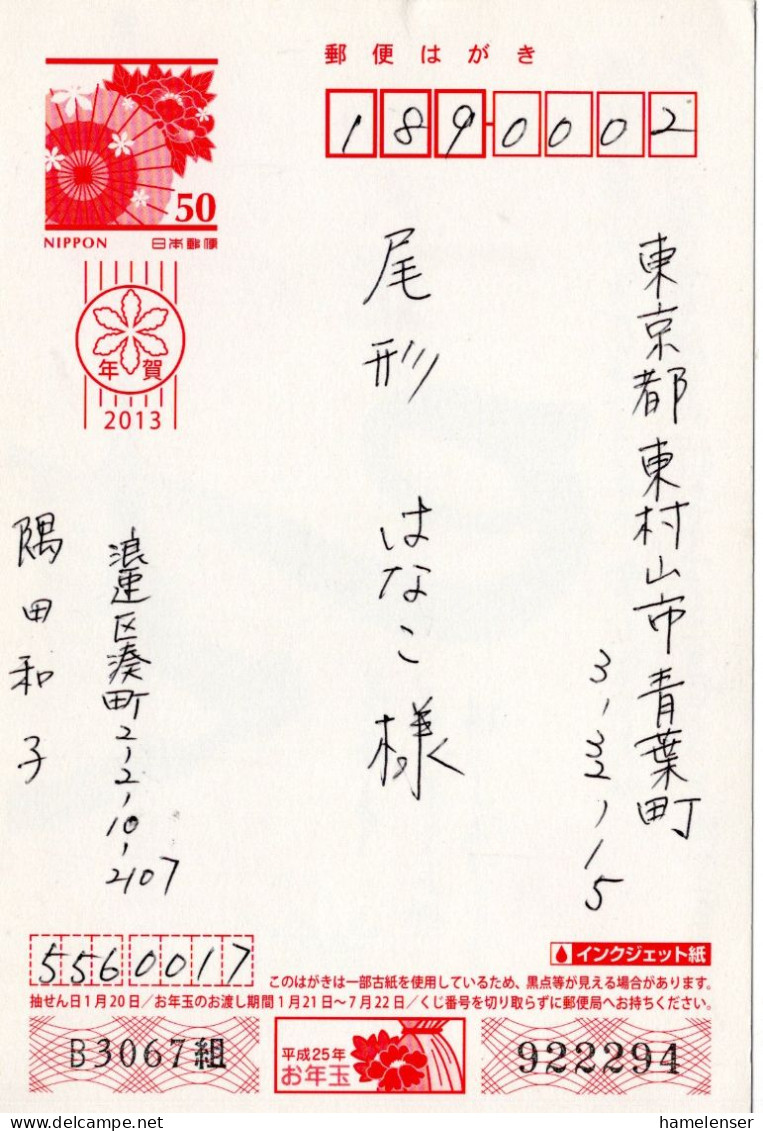 郵便はがき
189-0002
50
NIPPON 日本郵便
年賀
2013
東京都東村山市青葉町
3,32,15
尾形 はなこ 様
浪速区湊町2,2,10,407
隅田和子
5560017
インクジェット紙
このはがきは一部古紙を使用しているため、黒点等が見える場合があります。
抽せん日1月20日/お年玉のお渡し期間1月21日〜7月22日/くじ番号を切り取らずに郵便局へお持ちください。
B3067組
平成25年
お年玉
922294
hamelenser